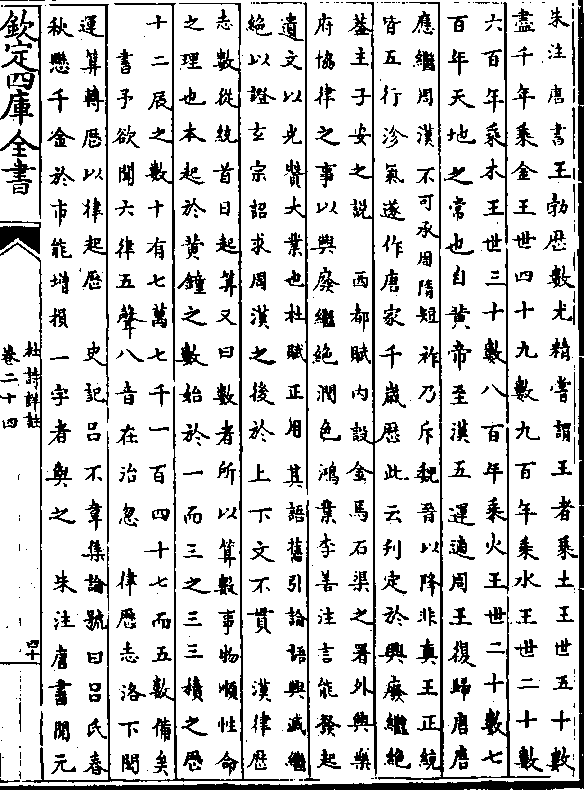 朱注唐書王勃歴數尤精嘗謂王者乗土王世五十數
盡千年乗金王世四十九數九百年乗水王世二十數
六百年乗木王世三十數八百年乗火王世二十數七
百年天地之常也自黄帝至漢五運適周王復歸唐唐
應繼周漢不可承周隋短祚乃斥魏晉以降非真王正統
皆五行沴氣遂作唐家千歳歴此云刋定於興廢繼絶
葢主子安之説　西都賦内設金馬石渠之署外興樂
府協律之事以興廢繼絶潤色鴻業李善注言能發起
遺文以光贊大業也杜賦正用其語舊引論語興滅繼
絶以證玄宗詔求周漢之後於上下文不貫　漢律歴
志數從統首日起算又曰數者所以算數事物順性命
之理也本起於黄鐘之數始於一而三之三三積之歴
十二辰之數十有七萬七千一百四十七而五數備矣
書予欲聞六律五聲八音在治忽　律歴志洛下閎
運算轉歴以律起歴　史記吕不韋集論號曰吕氏春
秋懸千金於市能增損一字者與之　朱注唐書開元
欽定四庫全書
杜詩詳註
卷二十四
四十